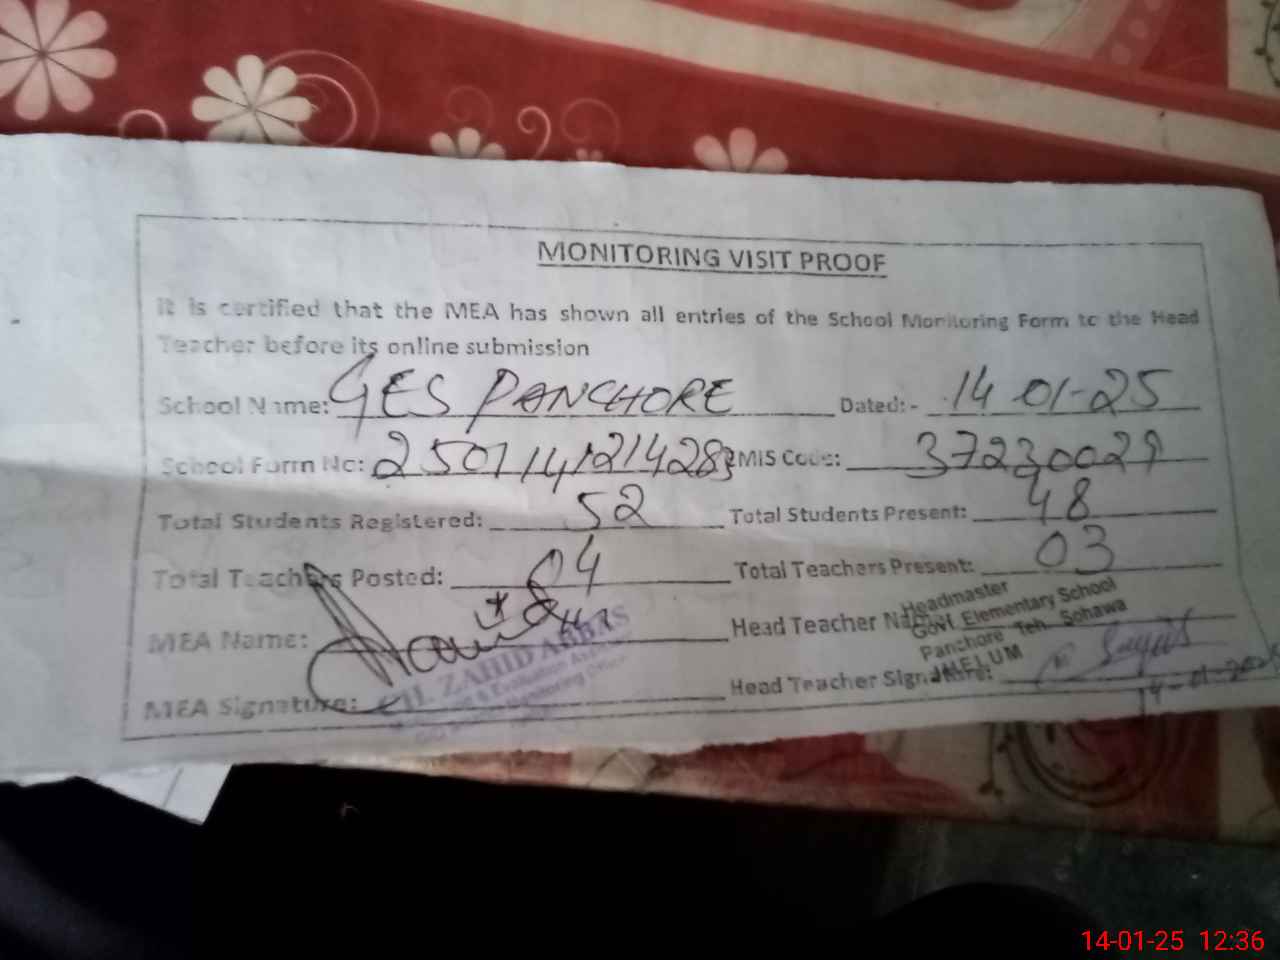 MONITORING VISIT PROOF
It is certified that the MEA has shown all entries of the School Monitoring Form to the Head
Teacher before its online submission
School Name: GES PANCHORE Dated:- 14-01-25
School Form No: 250114121428 EMIS Code: 37230029
Total Students Registered: 52 Total Students Present: 48
Total Teachers Posted: 04 Total Teachers Present: 03
MEA Name: Head Teacher Name:
Headmaster
Govt. Elementary School
Panchore Teh. Sohawa
JHELUM
MEA Signature: CH. ZAHID ABBAS Head Teacher Signature:
Monitoring & Evaluation
14-01-2025
14-01-25 12:36